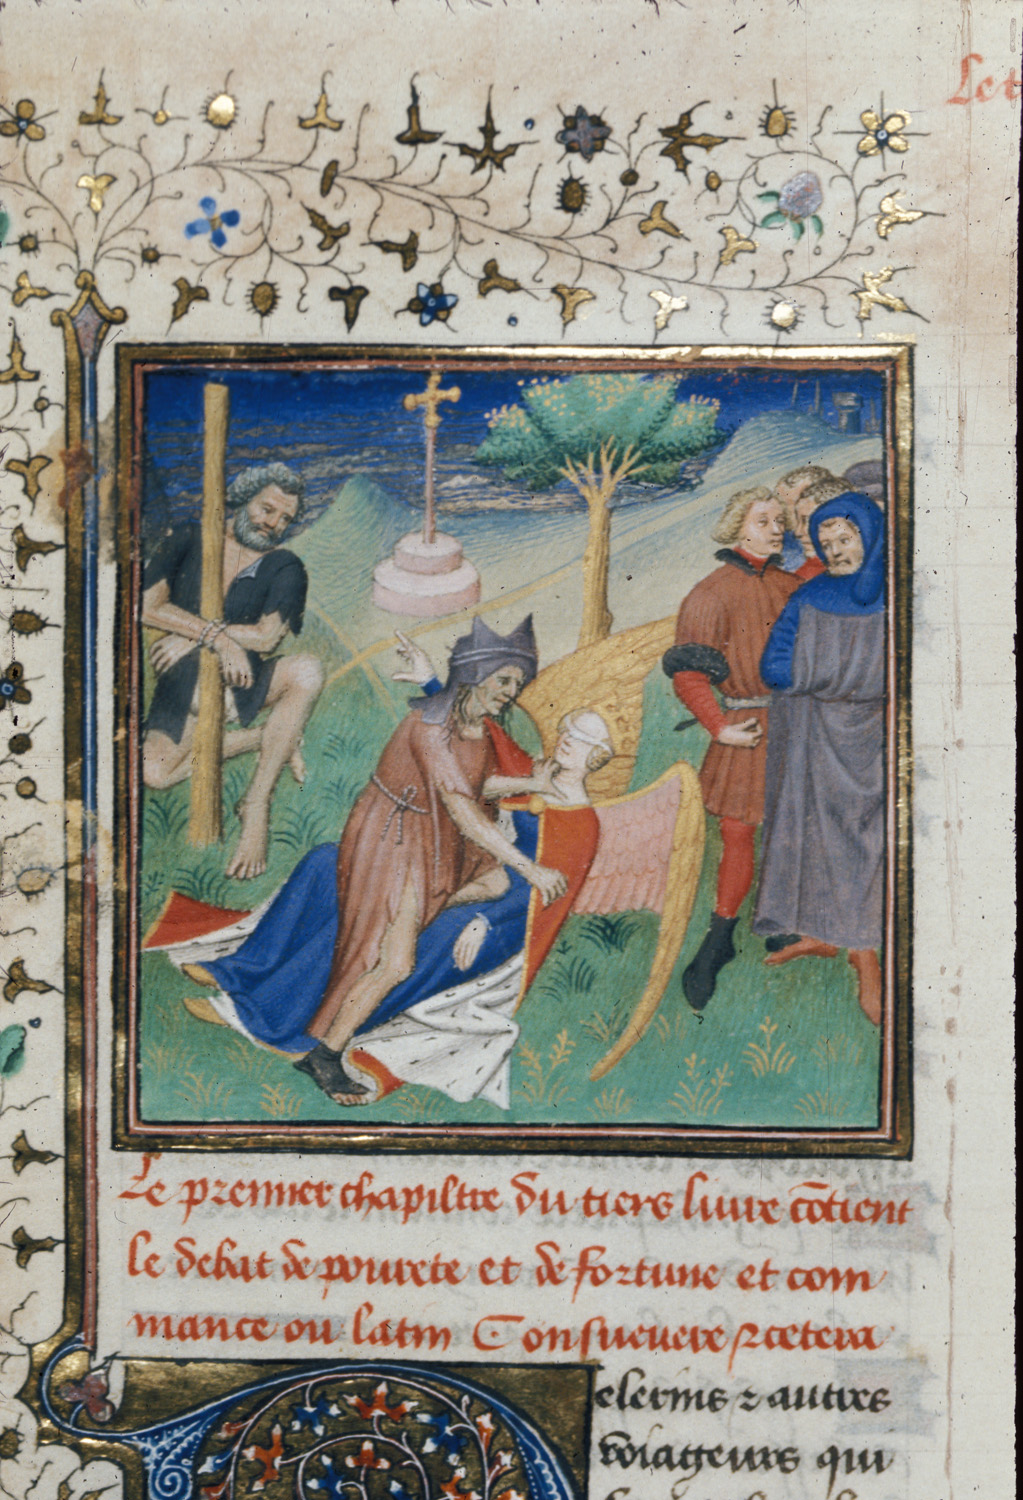 Let
Le premier chapiltre du tiers liure cōtient
le debat de pourete et de fortune et com
mance ou latin Consueuere ⁊cetera
elerins ⁊ autres
voiageurs qui